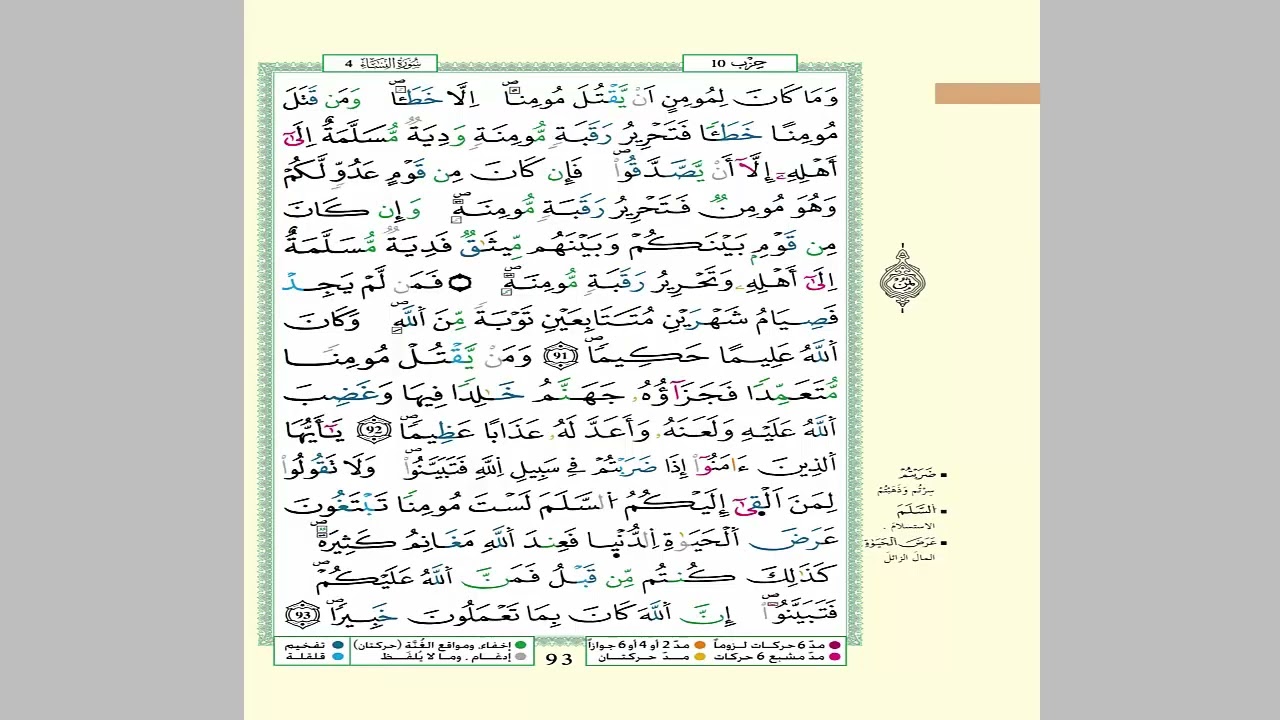 سُورَةُ النِّسَاءِ 4
حِزْب 10
وَمَا كَانَ لِمُومِنٍ اَنْ يَّقْتُلَ مُومِناً اِلَّا خَطَـٔاً وَمَن قَتَلَ
مُومِنًا خَطَـٔاً فَتَحْرِيرُ رَقَبَةٍ مُّومِنَةٍ وَدِيَةٌ مُّسَلَّمَةٌ اِلَىٰٓ
أَهْلِهِۦٓ إِلَّآ أَنْ يَّصَّدَّقُواْ فَإِن كَانَ مِن قَوْمٍ عَدُوٍّ لَّكُمْ
وَهُوَ مُومِنٌ فَتَحْرِيرُ رَقَبَةٍ مُّومِنَةٍ وَإِن كَانَ
مِن قَوْمٍ بَيْنَكُمْ وَبَيْنَهُم مِّيثَٰقٌ فَدِيَةٌ مُّسَلَّمَةٌ
اِلَىٰٓ أَهْلِهِۦ وَتَحْرِيرُ رَقَبَةٍ مُّومِنَةٍ فَمَن لَّمْ يَجِدْ
فَصِيَامُ شَهْرَيْنِ مُتَتَابِعَيْنِ تَوْبَةً مِّنَ اَللَّهِ وَكَانَ
اَللَّهُ عَلِيمًا حَكِيمًا 91 وَمَنْ يَّقْتُلْ مُومِنًا
مُّتَعَمِّدًا فَجَزَآؤُهُۥ جَهَنَّمُ خَٰلِدًا فِيهَا وَغَضِبَ
اَللَّهُ عَلَيْهِ وَلَعَنَهُۥ وَأَعَدَّ لَهُۥ عَذَابًا عَظِيمًا 92 يَٰٓأَيُّهَا
اَلَّذِينَ ءَامَنُوٓاْ إِذَا ضَرَبْتُمْ فِي سَبِيلِ اِللَّهِ فَتَبَيَّنُواْ وَلَا تَقُولُواْ
لِمَنَ اَلْقِىٰٓ إِلَيْكُمُ اُلسَّلَمَ لَسْتَ مُومِنًا تَبْتَغُونَ
عَرَضَ اَلْحَيَوٰةِ اِلدُّنْيٜا فَعِندَ اَللَّهِ مَغَانِمُ كَثِيرَةٌ
كَذَٰلِكَ كُنتُم مِّن قَبْلُ فَمَنَّ اَللَّهُ عَلَيْكُمْ
فَتَبَيَّنُوٓاْ إِنَّ اَللَّهَ كَانَ بِمَا تَعْمَلُونَ خَبِيرًا 93
ثمن
ضَرَبْتُمْ
سِرْتُم وَذَهَبْتُمْ
اَلسَّلَمَ
الاستسلامَ .
عَرَضَ اَلْحَيَوٰةِ
المالَ الزائلَ
مدّ 6 حركات لـزوماً مدّ 2 أو 4 أو 6 جوازاً إخفاء، ومواقع الغُنَّة (حركتان) تفخيم
مدّ مشبع 6 حركات مدّ حركتـان إدغـام . ومـا لا يُلفَـظ قلقلـة
93